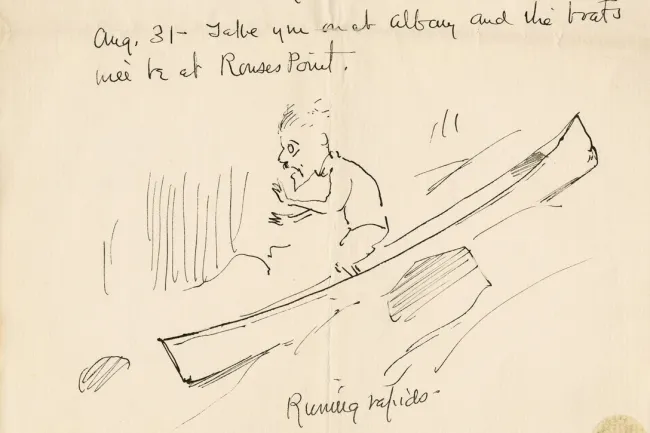 Aug. 31 - Take you on at Albany and the boats
will be at Rouses Point.
Running rapids -